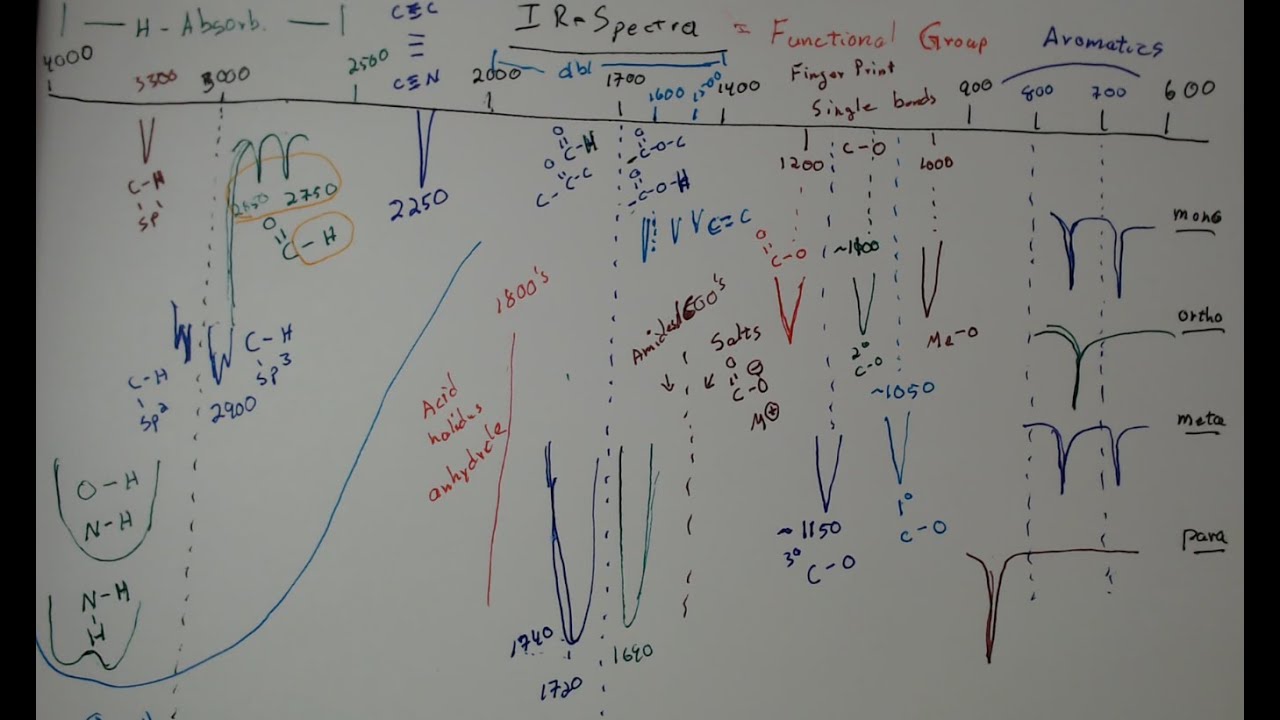 H-Absorb.
C≡C
≡
C≡N
IR-Spectra = Functional Group
Aromatics
4000 3300 3000 2500 2000 dbl 1700 1600 1500 1400
Finger Print
Single bonds
900 800 700 600
1200 C-O 1000
C-H
sp
2850 2750
O
C-H
2250
O
C-H
O
C-C-C
O
C-O-C
O
C-O-H
C=C
C-H
sp2
2900
C-H
sp3
O-H
N-H
N-H
H
Acid
halides
anhydride
1800's
1740
1720
1690
Amides 1600's
Salts
O ⊖
C-O
M⊕
O
C-O
~1100
2° C-O
Me-O
~1150
3° C-O
~1050
1° C-O
mono
ortho
meta
para